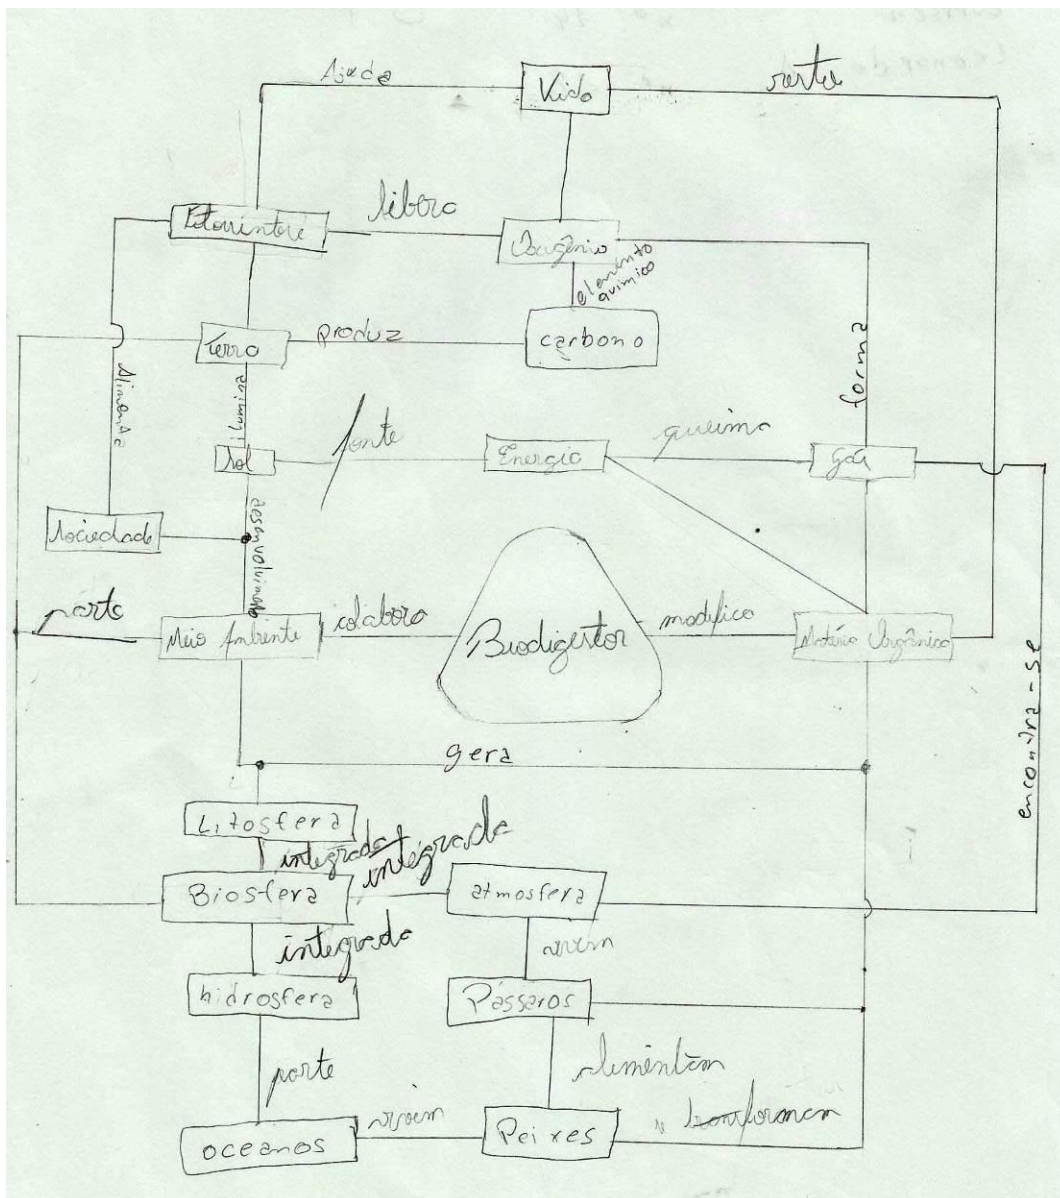 Ajuda
Vida
libera
Oxigênio
elemento
químico
Terra
produz
carbono
forma
Alimenta
ilumina
Sol
fonte
Energia
queima
Gás
Sociedade
parte
Meio Ambiente
colabora
Biodigestor
modifica
Matéria Orgânica
encontra-se
gera
Litosfera
integrada
integrada
Biosfera
atmosfera
integrada
vivem
hidrosfera
Pássaros
parte
alimentam
oceanos
vivem
Peixes